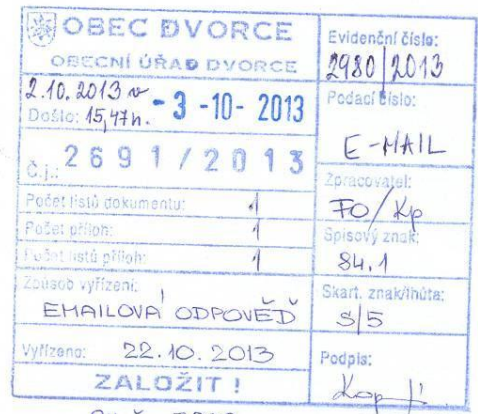 OBEC DVORCE
OBECNÍ ÚŘAD DVORCE
2.10.2013 v
Došlo: 15,47h. - 3 -10- 2013
Č.j.: 2691/2013
Počet listů dokumentu: 1
Počet příloh: 1
Počet listů příloh: 1
Způsob vyřízení:
EMAILOVÁ ODPOVĚĎ
Vyřízeno: 22.10.2013
ZALOŽIT !
Evidenční číslo:
2980/2013
Podací číslo:
E-MAIL
Zpracovatel:
FO/Kp
Spisový znak:
84.1
Skart. znak/lhůta:
S/5
Podpis: